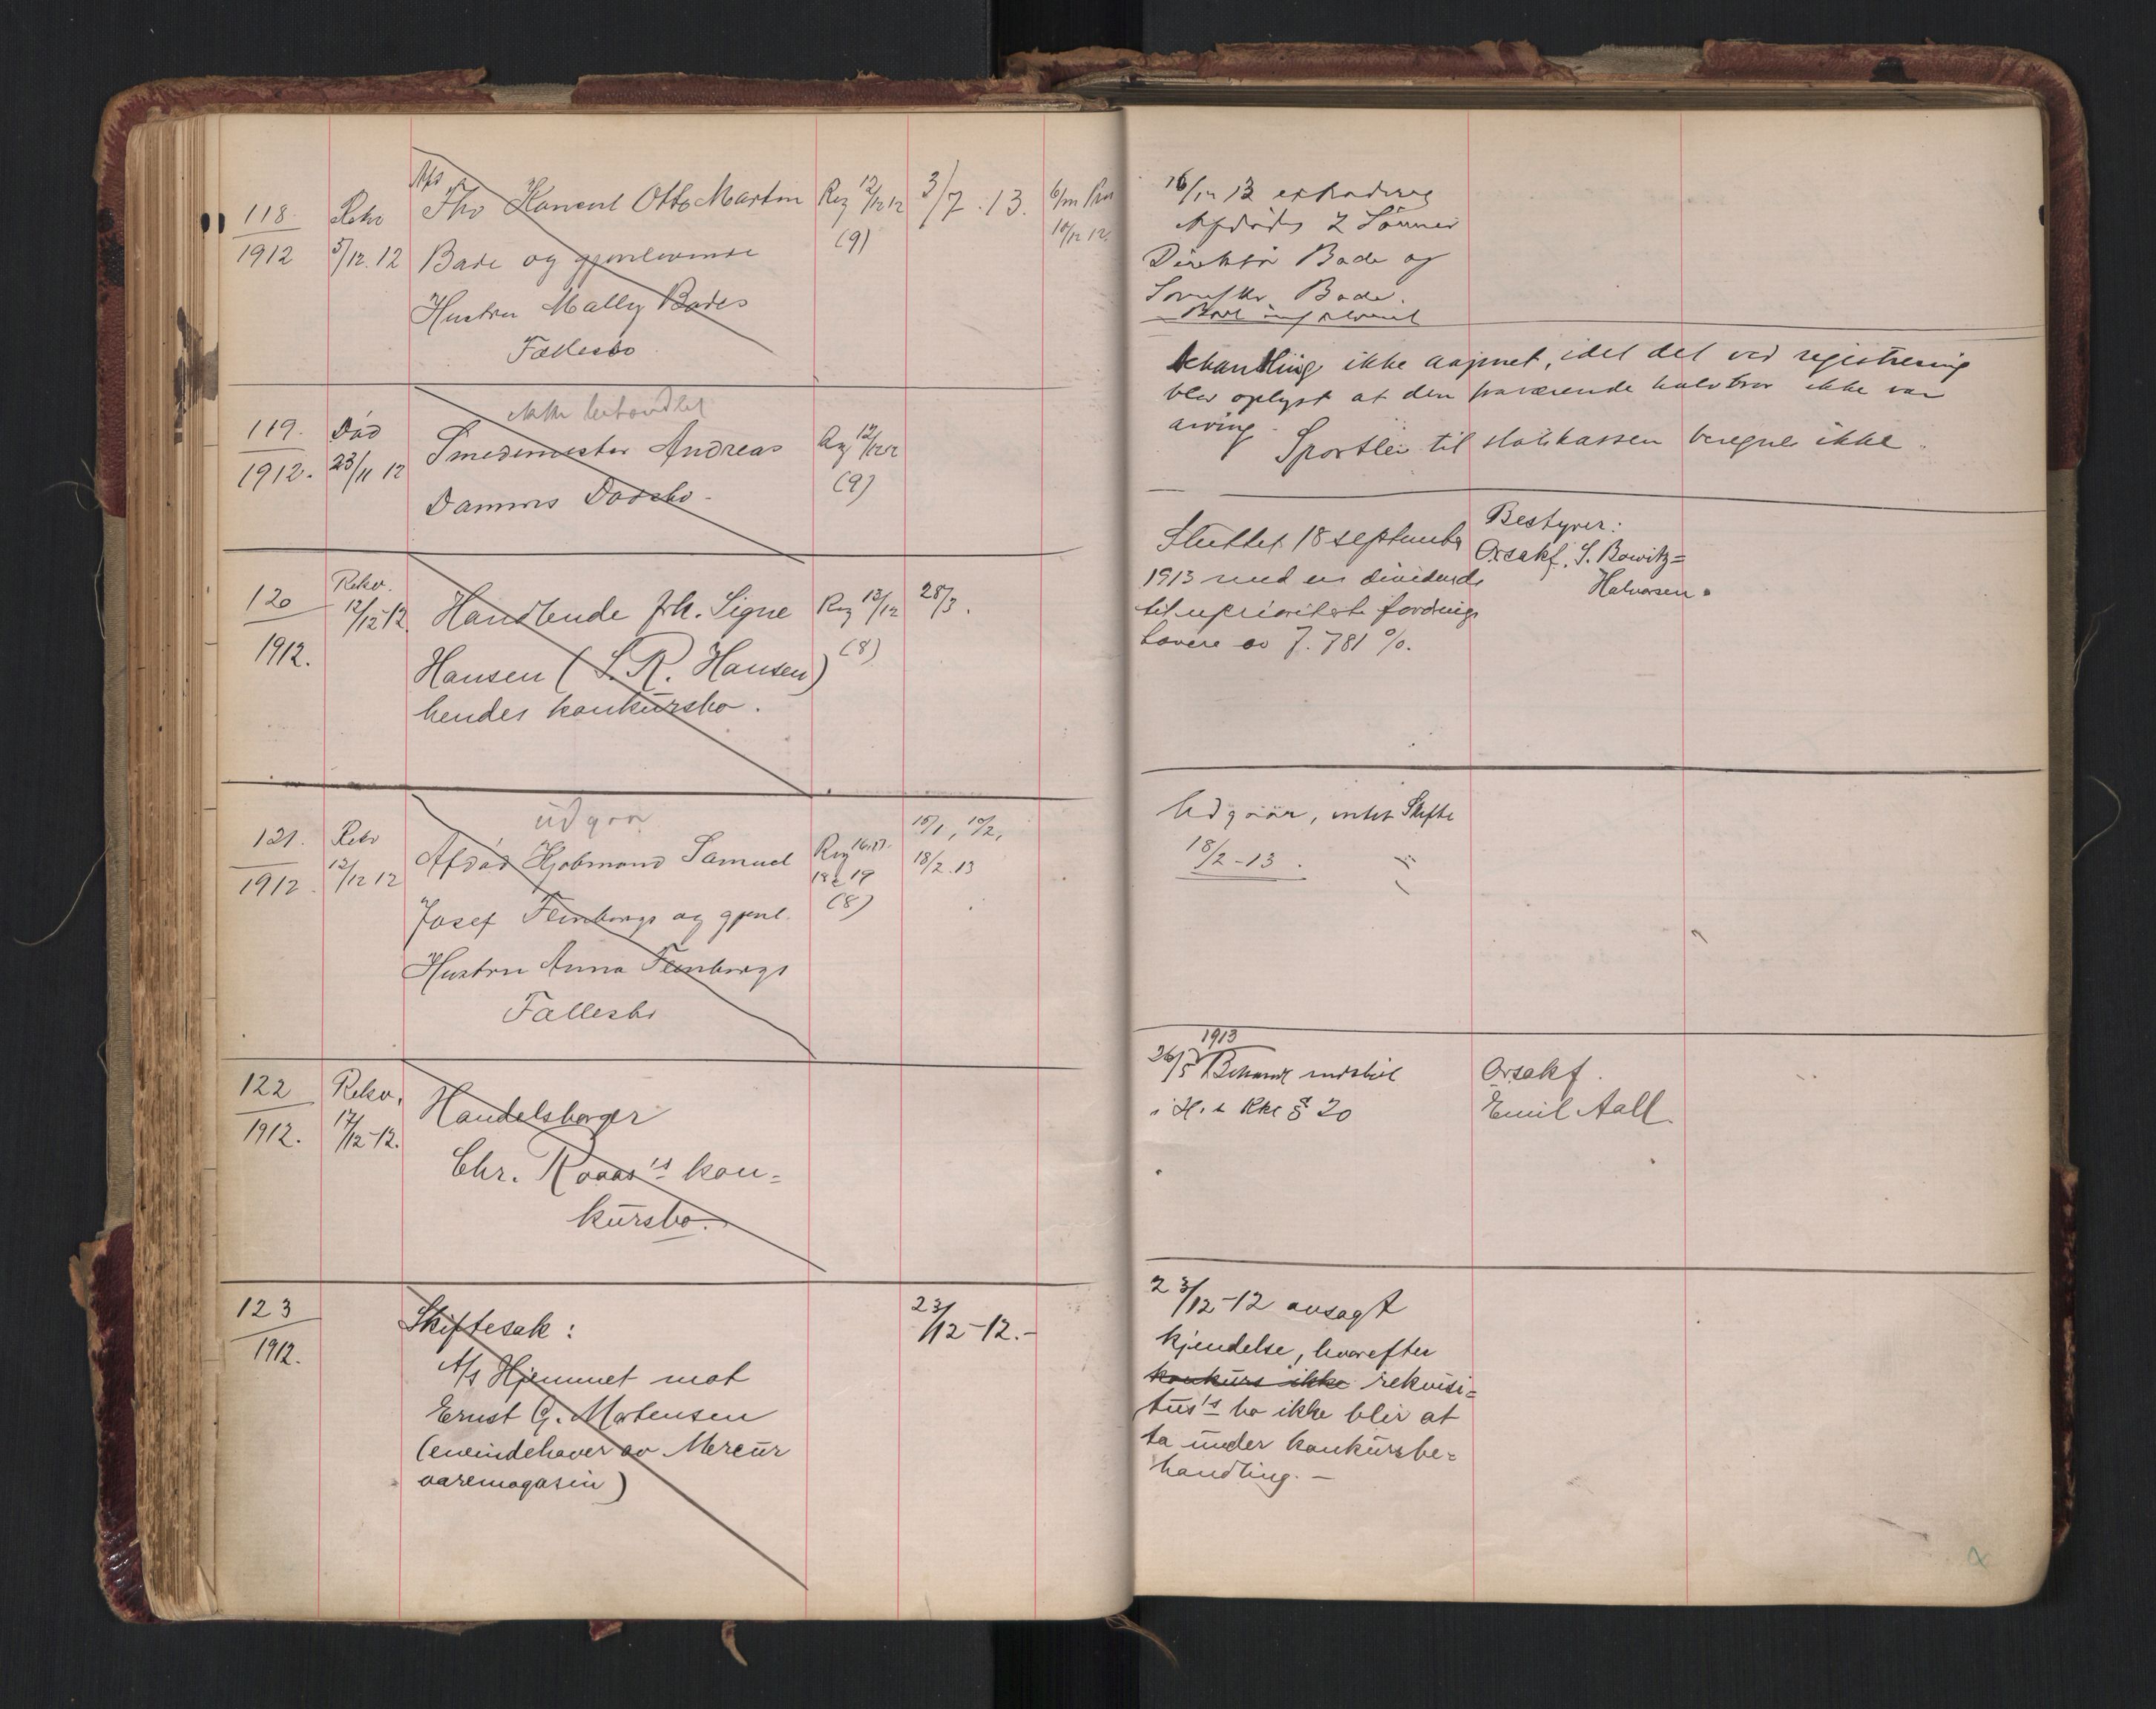 118
1912
Rekv
5/12.12
Afd
Otto Marton
Bade og gjenlevende
Hustru Mally Bades
Fællesbo
Reg 12/12 12
(9)
3/7.13.
10/12 12.
16/12 12
Afdødes 2 Sønner
Direktør Bade og
Bade.
119.
1912.
Død
23/11 12
ikke behandlet
Smedemester Andreas
Damms Dødsbo.
Reg 12/12 12
(9)
Behandling ikke aapnet, idet det ved registrering
blev oplyst at den fraværende halvbror ikke var
arving.
Sportler til statskassen beregnes ikke.
120
1912.
Rekv.
12/12-12
Handlende frk. Signe
Hansen (S. R. Hansen)
hendes konkursbo.
Reg 13/12
(8)
28/3.
Sluttet 18 september
1913 med en dividende
til uprioriterte fordrings
havere av 7.781 %.
Bestyrer:
Orsakf. S. Bowitz=
Halvorsen.
121.
1912.
Rekv
12/12 12
udgaar
Afdød Kjøbmand Samuel
Josef Feinbergs og gjenl.
Hustru Anna Feinbergs
Fællesbo
Reg 16.17.
18 & 19
(8)
10/1, 10/2,
18/2.13
Udgaar, intet Skifte
18/2-13.
122
1912.
Rekv.
17/12-12.
Handelsborger
Chr. Roaas's kon=
kursbo.
1913
26/5 Behandl indstil
i H. t. Kkl § 20
Orsakf.
Emil Aall.
123
1912.
Skiftesak:
A/s Hjemmet mot
Ernst G. Mortensen
(eneindehaver av Mercur
varemagasin)
23/12-12.-
23/12-12 avsagt
kjendelse, hvorefter
konkurs ikke rekvisi=
tus's bo ikke blir at
ta under konkursbe=
handling. -